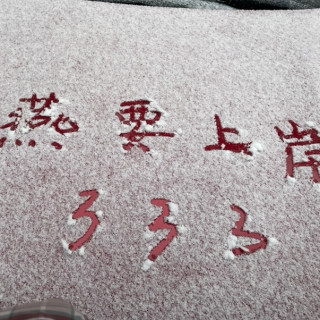 燕要上岸
333